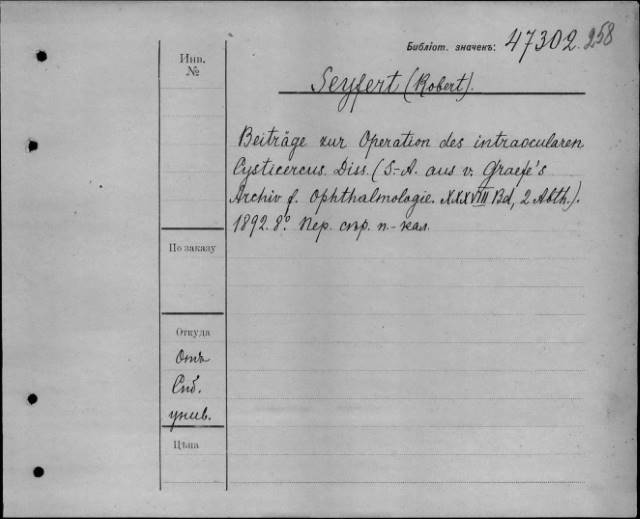 Библіот. значекъ: 47302. 258
Инв.
№
Seyfert (Robert).
Beiträge zur Operation des intraocularen
Cysticercus. Diss. (S.-A. aus v. Graefe's
Archiv f. Ophthalmologie. XXXVIII Bd, 2 Abth.).
1892. 8º. Пер. стр. п.-кал.
По заказу
Откуда
Отъ
Спб.
унив.
Цѣна